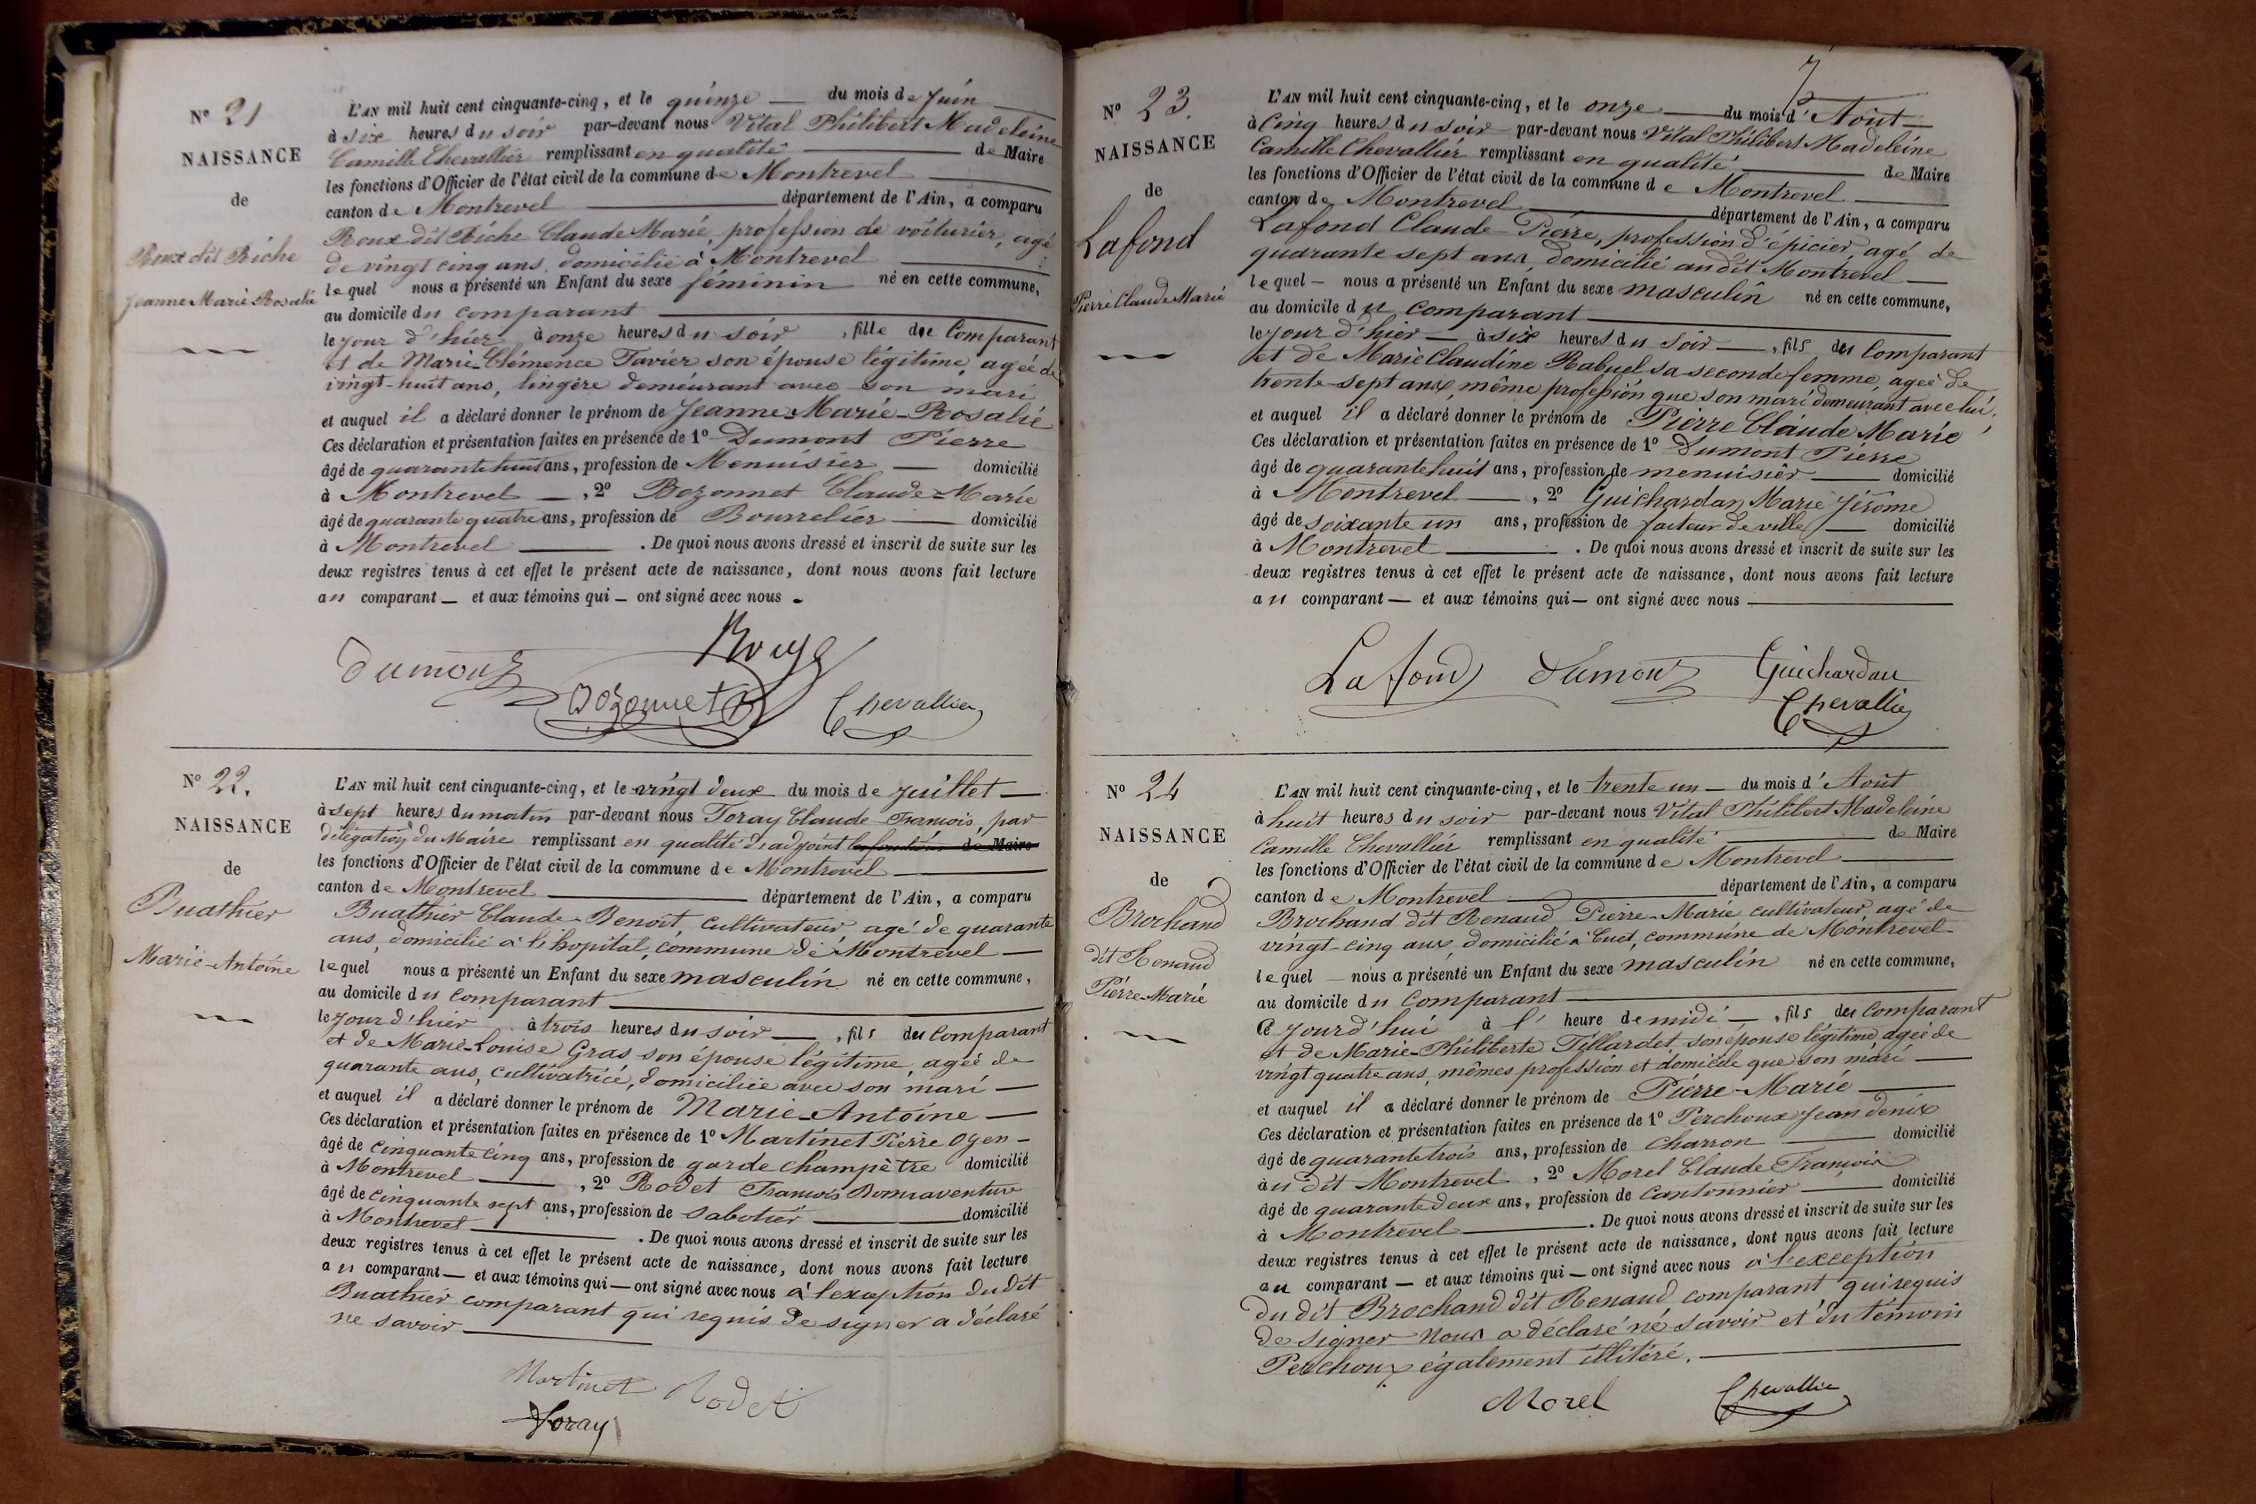 N° 21
NAISSANCE
de
Roux dit Riche
Jeanne Marie Rosalie
L'AN mil huit cent cinquante-cinq, et le quinze du mois de Juin
à six heures du soir par-devant nous Vital Philibert Madeleine
Camille Chevallier remplissant en qualité de Maire
les fonctions d'Officier de l'état civil de la commune de Montrevel
canton de Montrevel département de l'Ain, a comparu
Roux dit Riche Claude Marie, profession de voiturier, agé
de vingt cinq ans, domicilié à Montrevel
lequel nous a présenté un Enfant du sexe féminin né en cette commune,
au domicile du comparant
le jour d'hier à onze heures du soir, fille du Comparant
et de Marie Clémence Tavier son épouse légitime, agée de
vingt-huit ans, lingère demeurant avec son mari
et auquel il a déclaré donner le prénom de Jeanne-Marie-Rosalie
Ces déclaration et présentation faites en présence de 1° Dumont Pierre
âgé de quarante huit ans, profession de Menuisier domicilié
à Montrevel, 2° Bozonnet Claude-Marie
âgé de quarante quatre ans, profession de Bourrelier domicilié
à Montrevel. De quoi nous avons dressé et inscrit de suite sur les
deux registres tenus à cet effet le présent acte de naissance, dont nous avons fait lecture
au comparant et aux témoins qui ont signé avec nous.
Roux
Dumont
Bozonnet
Chevallier
N° 22.
NAISSANCE
de
Buathier
Marie-Antoine
L'AN mil huit cent cinquante-cinq, et le vingt deux du mois de Juillet
à sept heures du matin par-devant nous Foray Claude-François, par
délégation du Maire remplissant en qualité d'adjoint de Maire
les fonctions d'Officier de l'état civil de la commune de Montrevel
canton de Montrevel département de l'Ain, a comparu
Buathier Claude-Benoit, cultivateur, agé de quarante
ans, domicilié à l'hopital, commune de Montrevel
lequel nous a présenté un Enfant du sexe masculin né en cette commune,
au domicile du comparant
le jour d'hier à trois heures du soir, fils du Comparant
et de Marie-Louise Gras son épouse légitime, agée de
quarante ans, cultivatrice, domiciliée avec son mari
et auquel il a déclaré donner le prénom de Marie-Antoine
Ces déclaration et présentation faites en présence de 1° Martinet Pierre Oyen
âgé de cinquante cinq ans, profession de garde champêtre domicilié
à Montrevel, 2° Rodet François Bonnaventure
âgé de cinquante sept ans, profession de sabotier domicilié
à Montrevel. De quoi nous avons dressé et inscrit de suite sur les
deux registres tenus à cet effet le présent acte de naissance, dont nous avons fait lecture
au comparant et aux témoins qui ont signé avec nous à l'exception dudit
Buathier comparant qui requis de signer a déclaré
ne savoir
Martinet Rodet
Foray
7
N° 23.
NAISSANCE
de
Lafond
Pierre Claude Marie
L'AN mil huit cent cinquante-cinq, et le onze du mois d'Août
à cinq heures du soir par-devant nous Vital Philibert Madeleine
Camille Chevallier remplissant en qualité de Maire
les fonctions d'Officier de l'état civil de la commune de Montrevel
canton de Montrevel département de l'Ain, a comparu
Lafond Claude-Pierre, profession d'épicier, agé de
quarante sept ans, domicilié au dit Montrevel
lequel nous a présenté un Enfant du sexe masculin né en cette commune,
au domicile du comparant
le jour d'hier à six heures du soir, fils du Comparant
et de Marie Claudine Rabuel sa seconde femme, agée de
trente-sept ans, même profession que son mari demeurant avec lui,
et auquel il a déclaré donner le prénom de Pierre Claude Marie
Ces déclaration et présentation faites en présence de 1° Dumont Pierre
âgé de quarante huit ans, profession de menuisier domicilié
à Montrevel, 2° Guichardan Marie Jérôme
âgé de soixante un ans, profession de facteur de ville domicilié
à Montrevel. De quoi nous avons dressé et inscrit de suite sur les
deux registres tenus à cet effet le présent acte de naissance, dont nous avons fait lecture
au comparant et aux témoins qui ont signé avec nous
Lafond Dumont Guichardan
Chevallier
N° 24
NAISSANCE
de
Brochand
dit Renaud
Pierre-Marie
L'AN mil huit cent cinquante-cinq, et le trente un du mois d'Août
à huit heures du soir par-devant nous Vital Philibert Madeleine
Camille Chevallier remplissant en qualité de Maire
les fonctions d'Officier de l'état civil de la commune de Montrevel
canton de Montrevel département de l'Ain, a comparu
Brochand dit Renaud Pierre-Marie cultivateur, agé de
vingt-cinq ans, domicilié à Cuet, commune de Montrevel
lequel nous a présenté un Enfant du sexe masculin né en cette commune,
au domicile du comparant
ce jourd'hui à l'heure de midi, fils du Comparant
et de Marie-Philiberte Tillardet son épouse légitime, agée de
vingt quatre ans, mêmes profession et domicile que son mari
et auquel il a déclaré donner le prénom de Pierre-Marie
Ces déclaration et présentation faites en présence de 1° Perchoux Jean denix
âgé de quarante trois ans, profession de charron domicilié
au dit Montrevel, 2° Morel Claude François
âgé de quarante deux ans, profession de cantonnier domicilié
à Montrevel. De quoi nous avons dressé et inscrit de suite sur les
deux registres tenus à cet effet le présent acte de naissance, dont nous avons fait lecture
au comparant et aux témoins qui ont signé avec nous à l'exception
du dit Brochand dit Renaud comparant qui requis
de signer nous a déclaré ne savoir et du témoin
Perchoux également illitéré.
Morel Chevallier